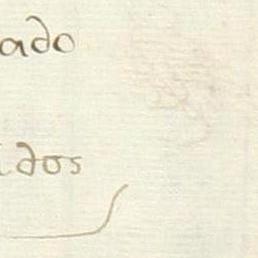 ado
idos